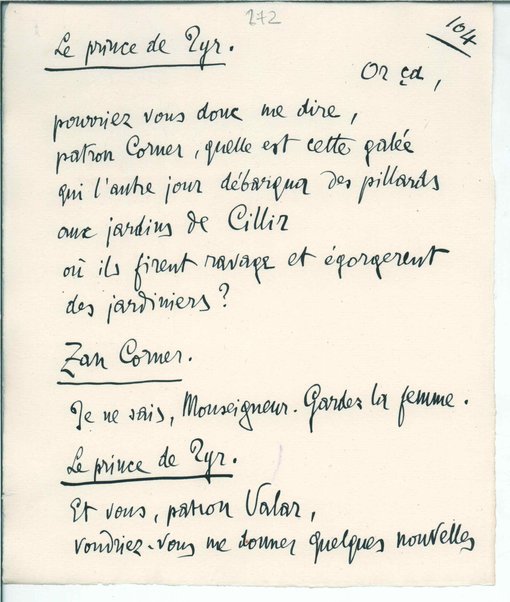 272
104
Le prince de Tyr.
Or çà,
pourriez vous donc me dire,
patron Corner, quelle est cette galée
qui l'autre jour débarqua des pillards
aux jardins de Cillir
où ils firent ravage et égorgerent
des jardiniers?
Zan Corner.
Je ne sais, Monseigneur. Gardez la femme.
Le prince de Tyr.
Et vous, patron Valar,
voudriez-vous me donner quelques nouvelles